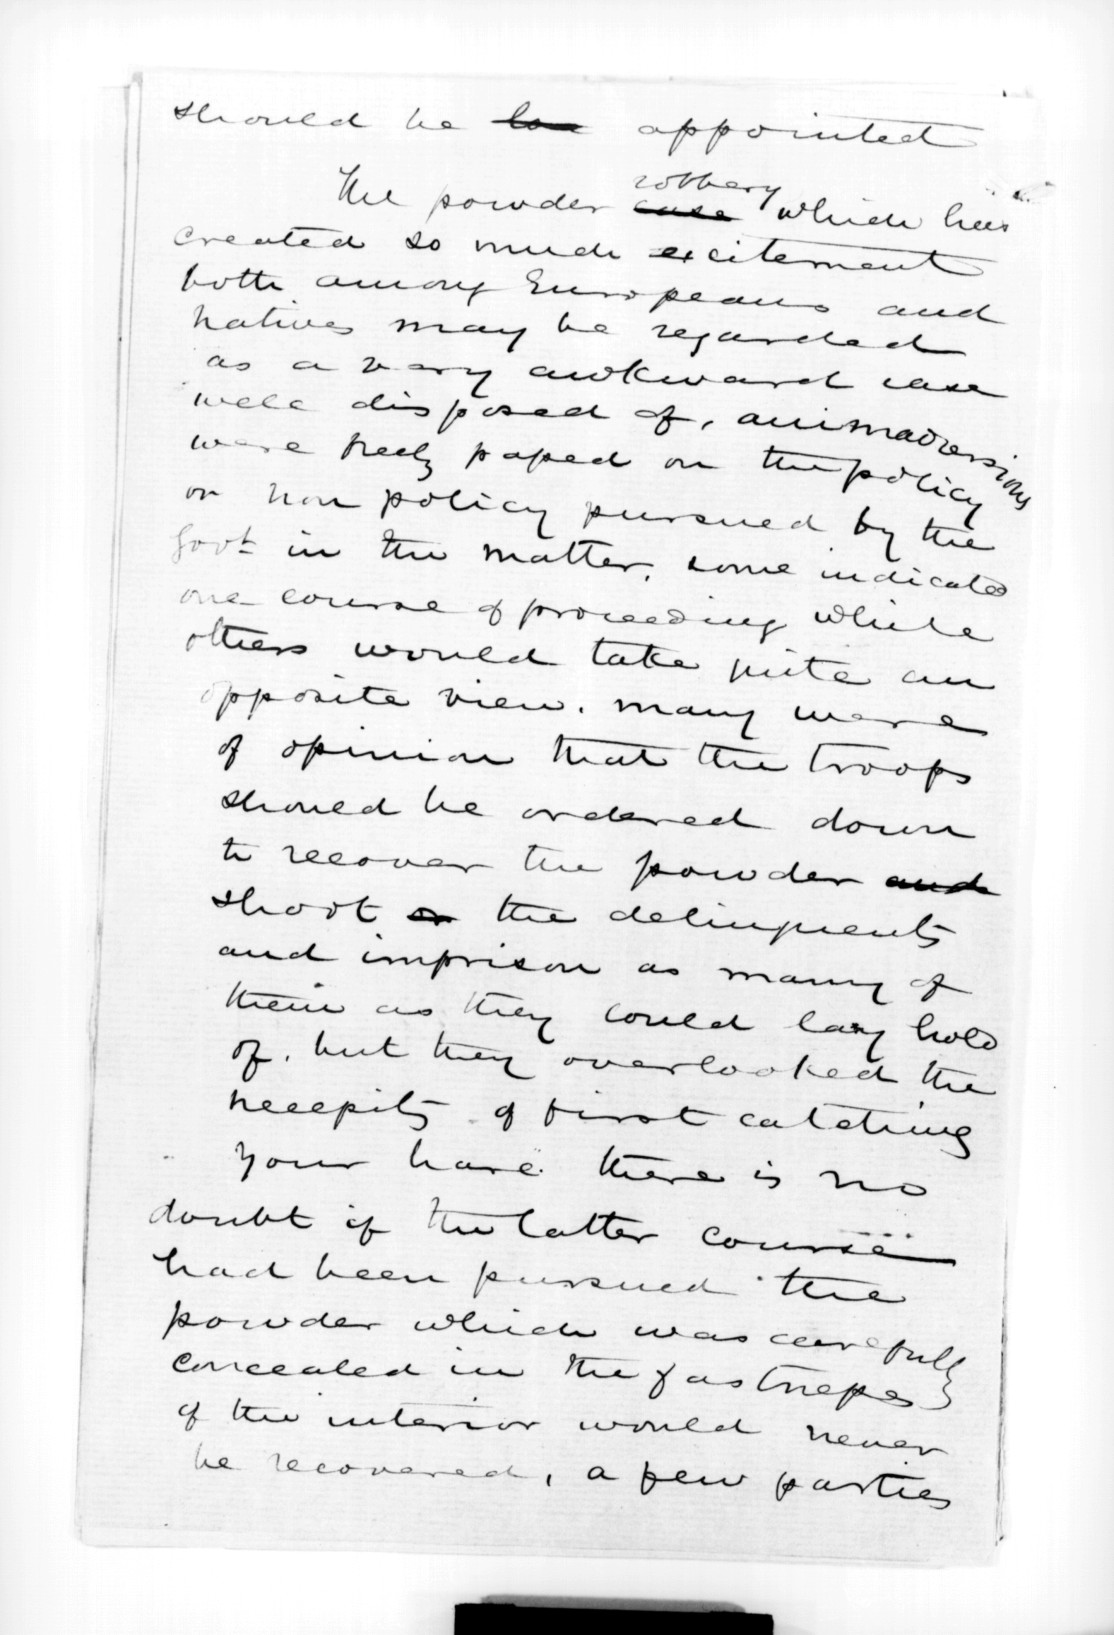 should be appointed
The powder robbery case which has
created so much excitement
both among Europeans and
natives may be regarded
as a very awkward case
well disposed of, animadversions
were freely passed on the policy
or non policy pursued by the
Govt in the matter, some indicated
one course of proceeding while
others would take quite an
opposite view. many were
of opinion that the troops
should be ordered down
to recover the powder and
shoot or the delinquents
and imprison as many of
them as they could lay hold
of, but they overlooked the
necessity of first catching
your hare. there is no
doubt if the latter course
had been pursued the
powder which was carefully
concealed in the fastnesses
of the interior would never
be recovered, a few parties